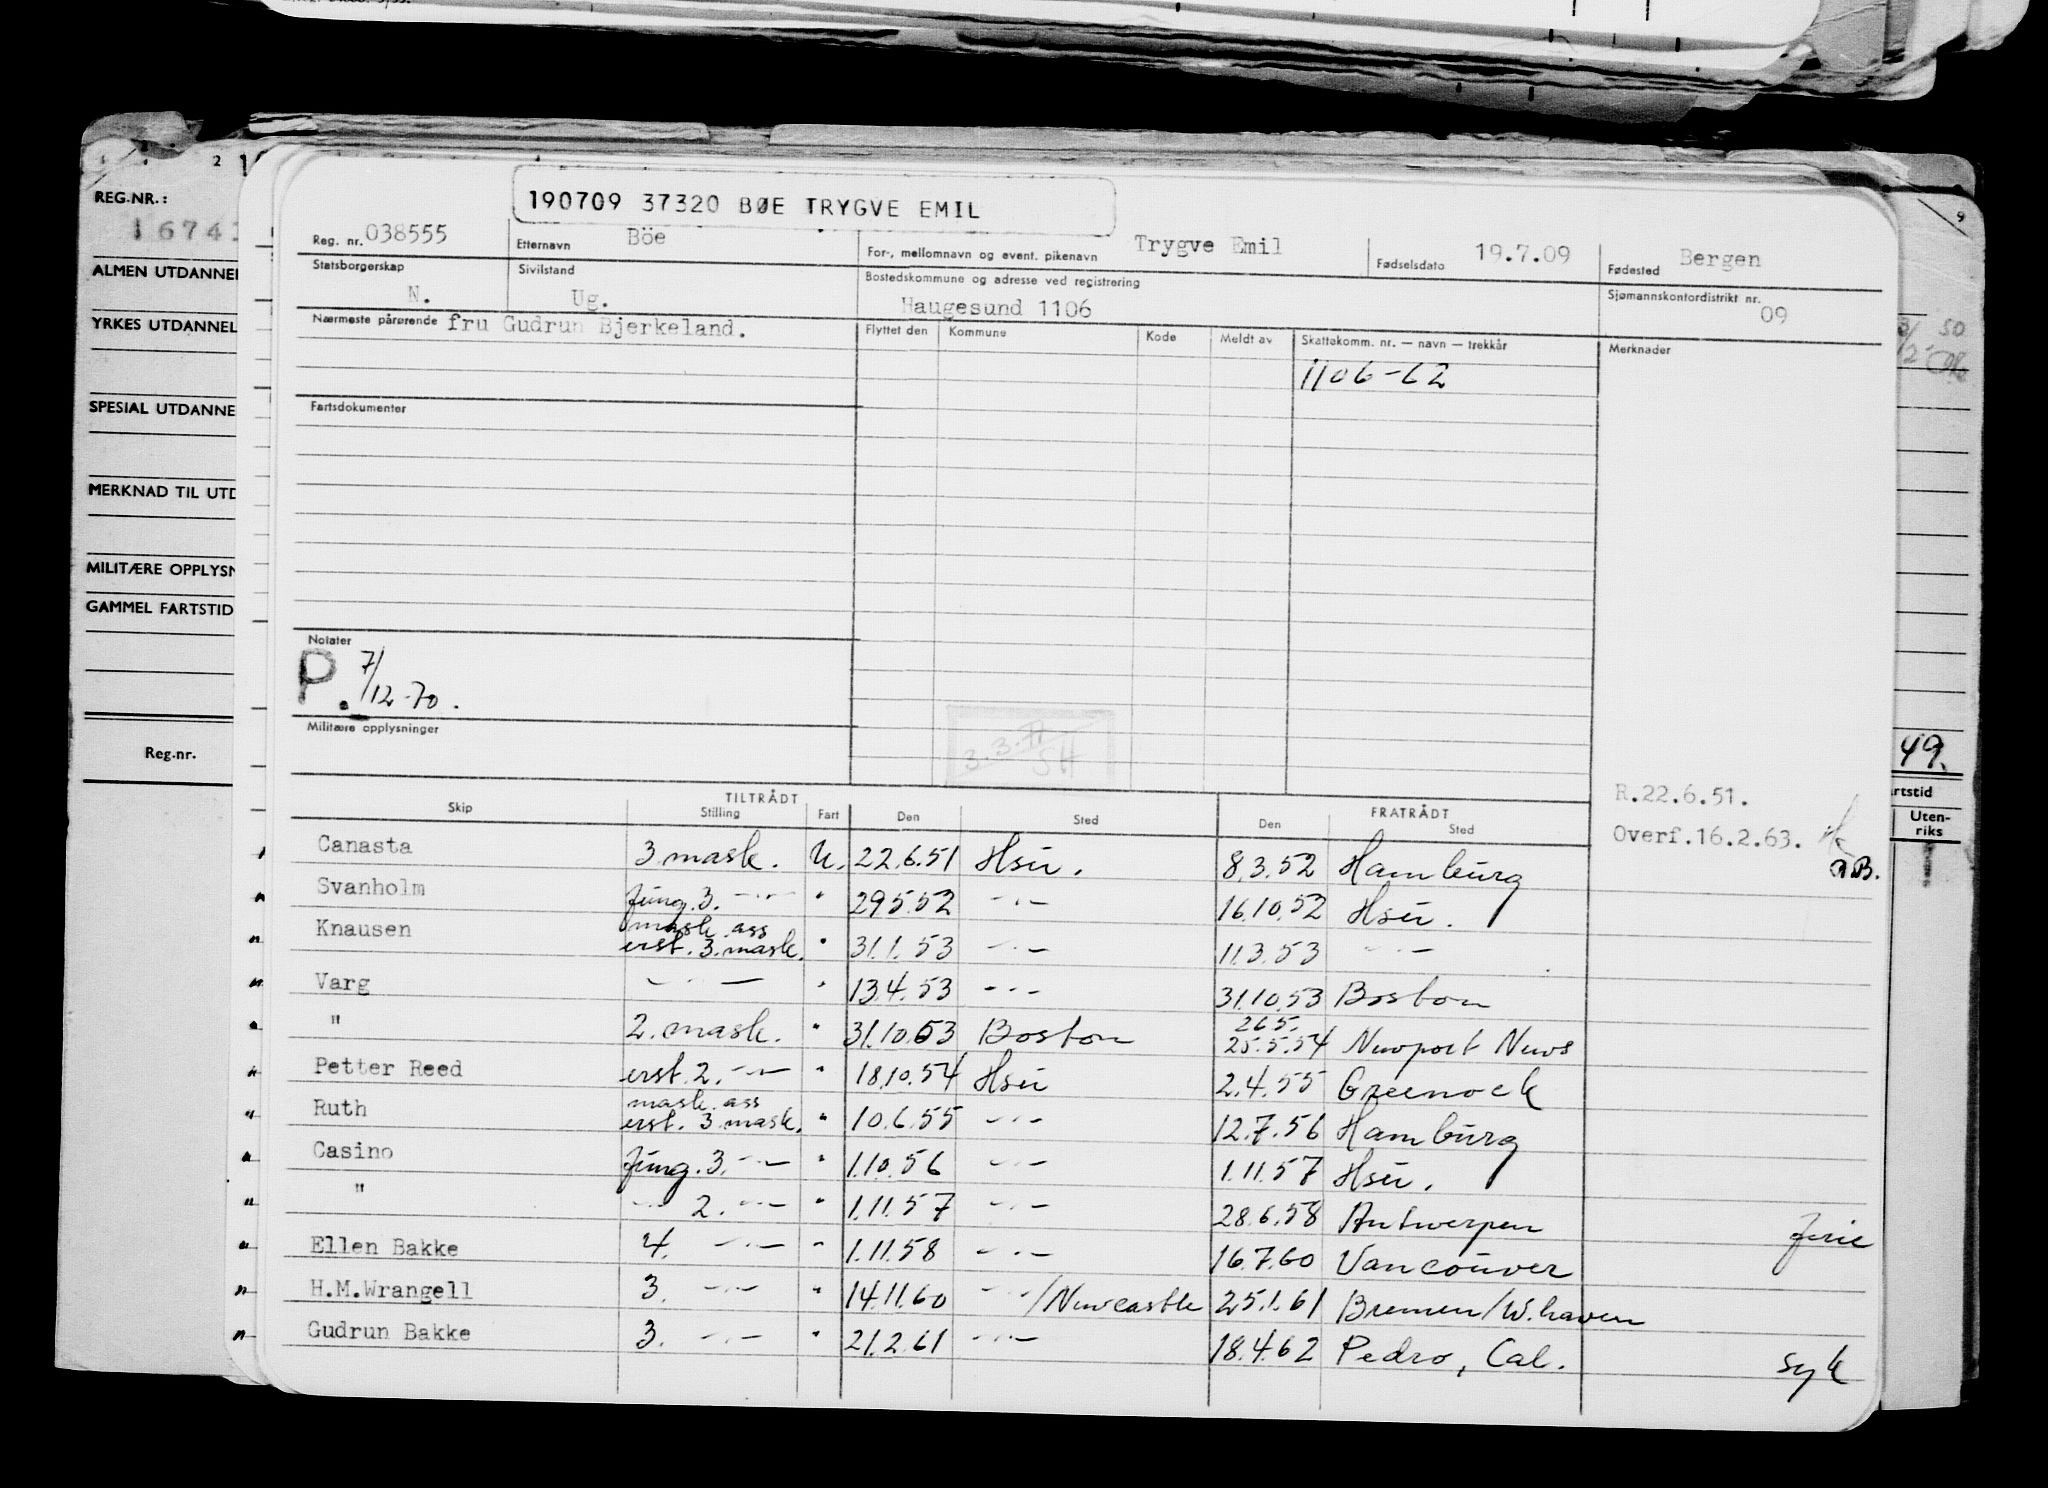 2
9
REG.NR.:
1674
ALMEN UTDANNE
YRKES UTDANNEL
SPESIAL UTDANNE
MERKNAD TIL UTD
MILITÆRE OPPLYSN
GAMMEL FARTSTID
Reg.nr.
50
49.
rtstid
Uten-
riks
190709 37320 BØE TRYGVE EMIL
Reg. nr. 038555 Etternavn Böe For-, mellomnavn og event. pikenavn Trygve Emil Fødselsdato 19.7.09 Fødested Bergen
Statsborgerskap N. Sivilstand Ug. Bostedskommune og adresse ved registrering Haugesund 1106 Sjømannskontordistrikt nr. 09
Nærmeste pårørende fru Gudrun Bjerkeland. Flyttet den Kommune Kode Meldt av Skattekomm. nr. — navn — trekkår Merknader
1106-62
Fartsdokumenter
Notater
P. 7/12-70.
Militære opplysninger
R.22.6.51.
Overf.16.2.63.
aB.
TILTRÅDT FRATRÅDT
Skip Stilling Fart Den Sted Den Sted
Canasta 3 mask. U. 22.6.51 Hsu. 8.3.52 Hamburg
Svanholm fung. 3. -"- " 29.5.52 -"- 16.10.52 Hsu.
Knausen mask. ass erst. 3. mask. " 31.1.53 -"- 11.3.53 -"-
Varg -"- " 13.4.53 -"- 31.10.53 Boston
" 2. mask. " 31.10.53 Boston 26.5. 25.5.54 Newport News
Petter Reed erst. 2. -"- " 18.10.54 Hsu 2.4.55 Greenock
Ruth mask. ass erst. 3. mask. " 10.6.55 -"- 12.7.56 Hamburg
Casino fung. 3. -"- " 1.10.56 -"- 1.11.57 Hsu.
" -"- 2. -"- " 1.11.57 -"- 28.6.58 Antwerpen ferie
Ellen Bakke 4. -"- " 1.11.58 -"- 16.7.60 Vancouver
H.M.Wrangell 3. -"- " 14.11.60 -"-/Newcastle 25.1.61 Bremen/W.haven
Gudrun Bakke 3. -"- " 21.2.61 -"- 18.4.62 Pedro, Cal. syk